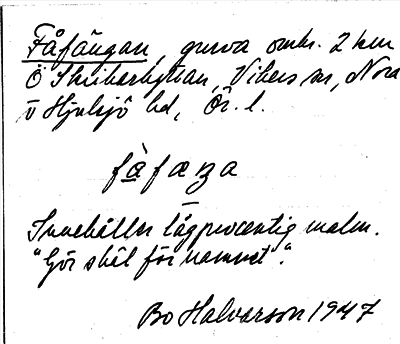 Fåfängan, gruva omkr. 2 km
Ö Skrikarhyttan, Vikers sn, Nora
o Hjulsjö bd, Ör. l.
fàfæŋa
Innehåller lågprocentig malm.
"Gör skäl för namnet".
Bo Halvarson 1947